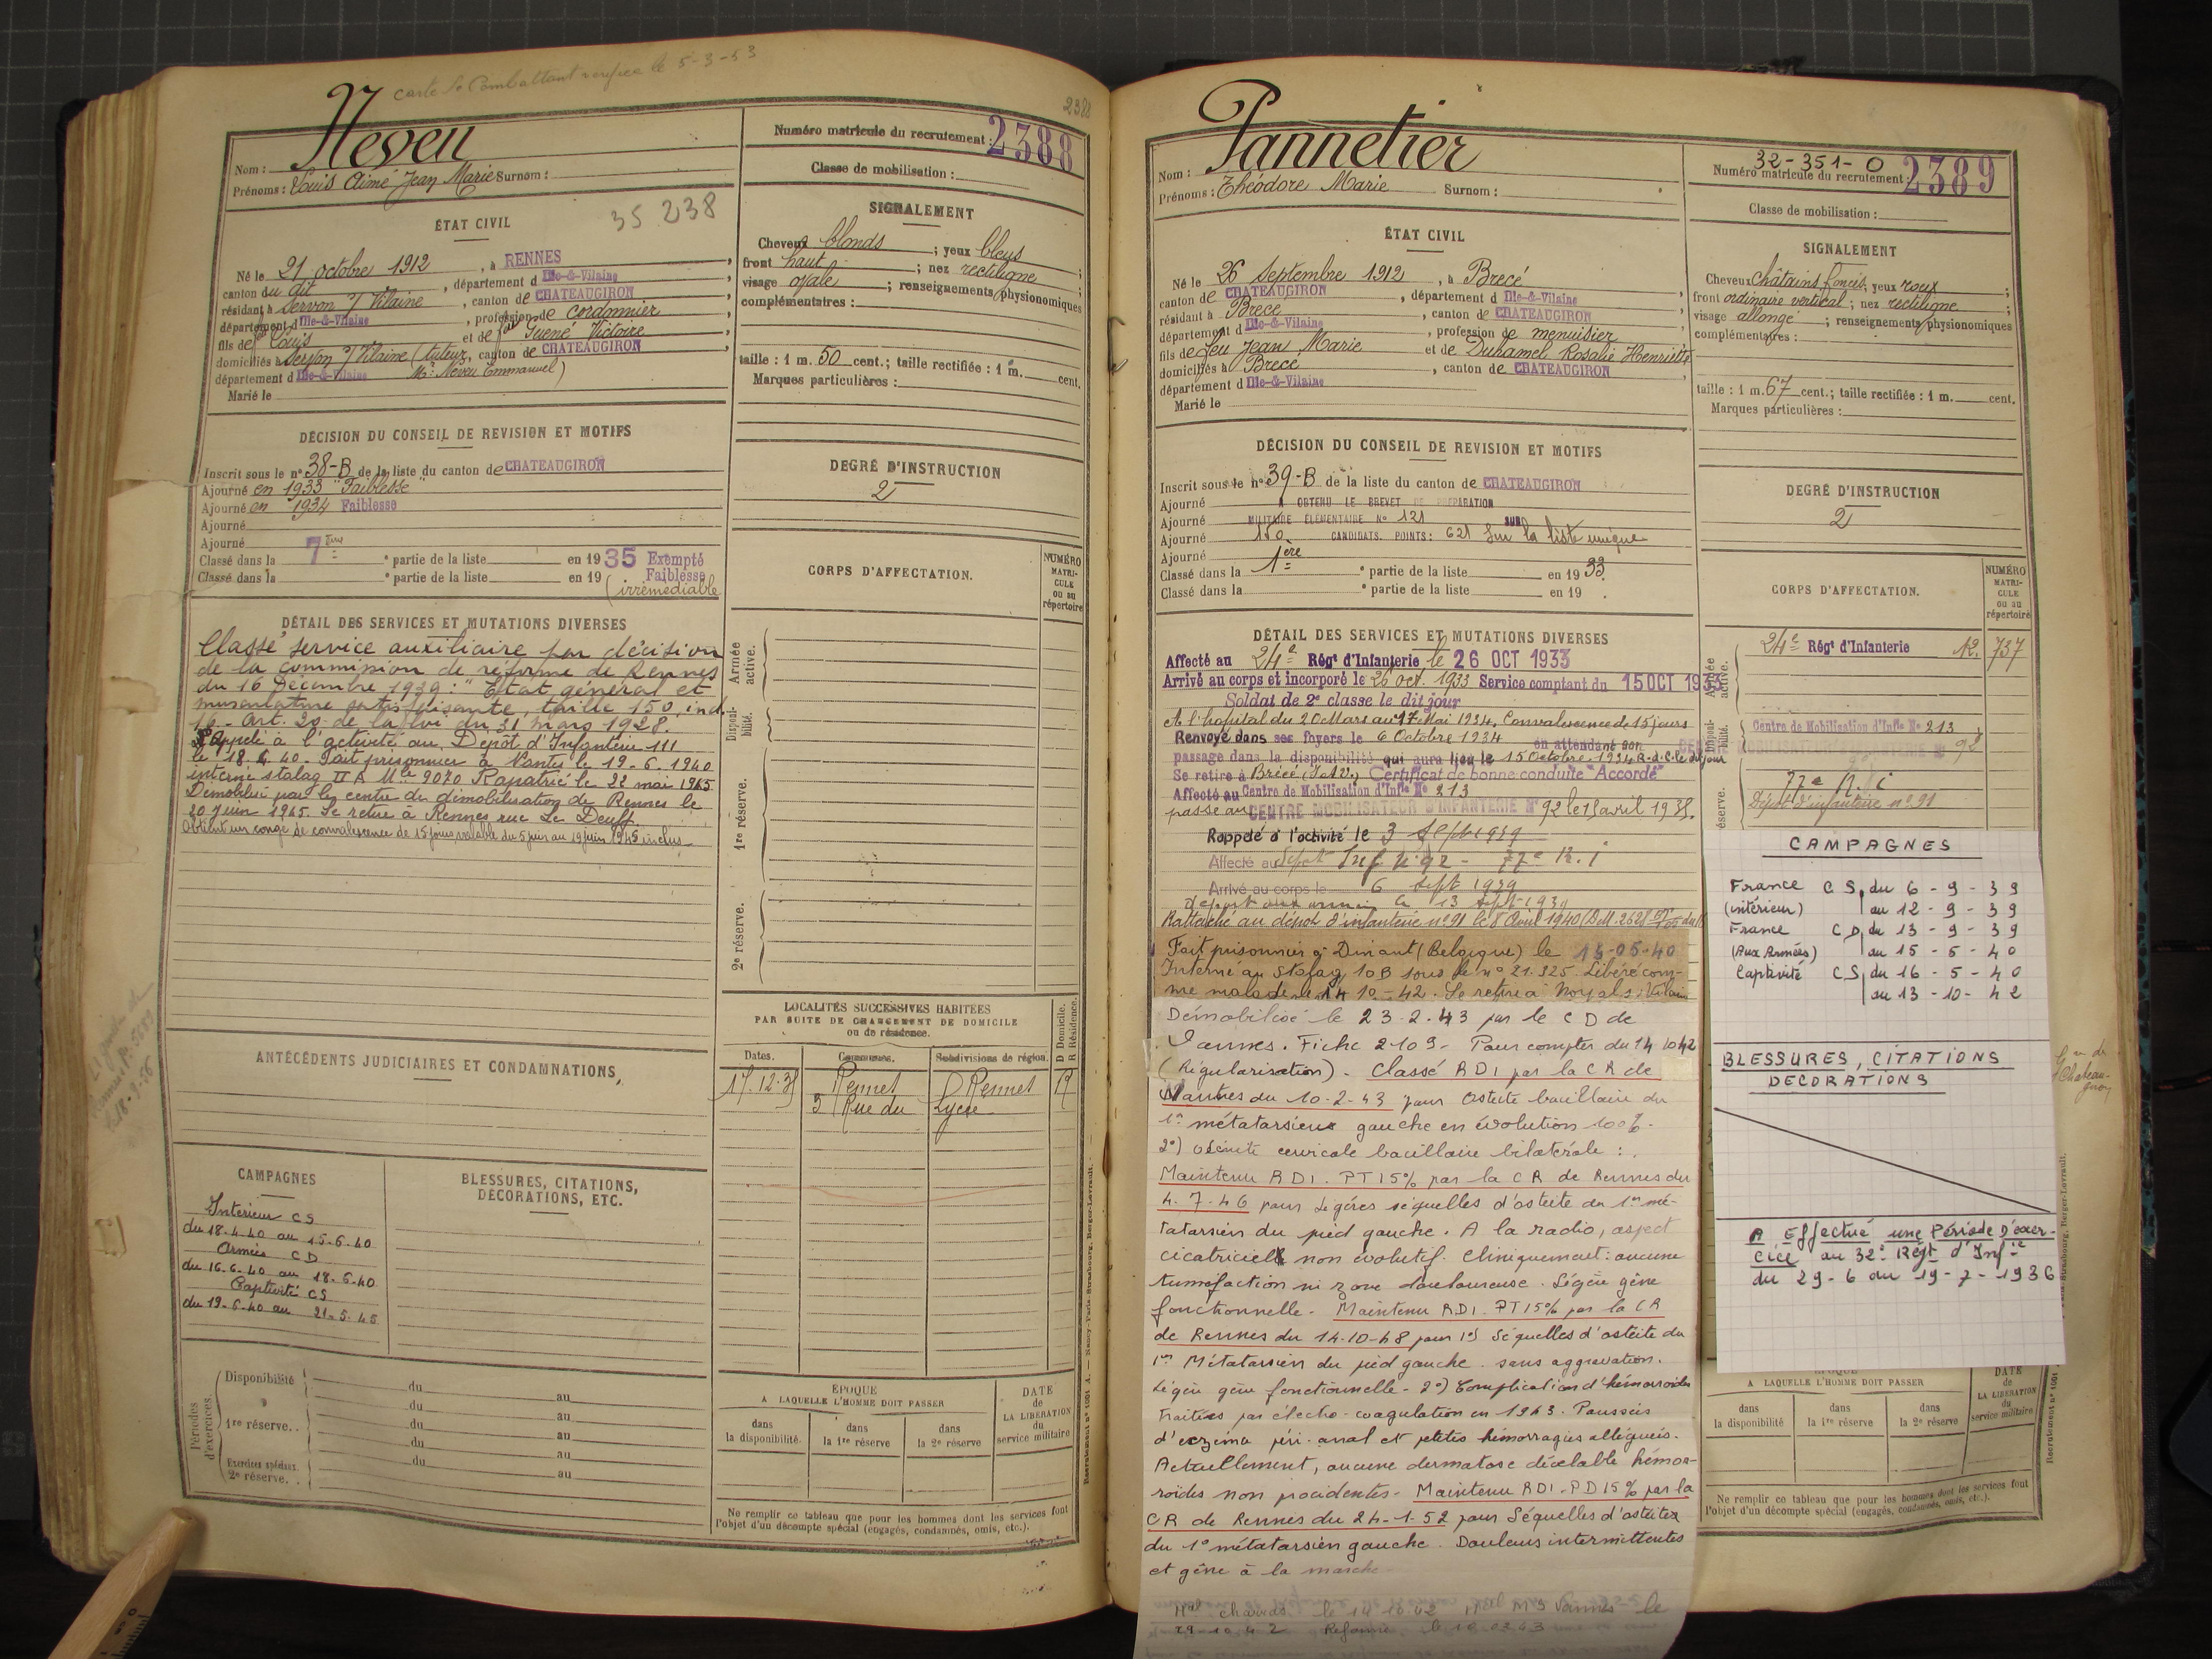 Carte de Combattant vérifiée le 5-3-53
2388
Nom : Neveu
Prénoms : Louis Aimé Jean Marie Surnom :
Numéro matricule du recrutement : 2388
Classe de mobilisation :
ÉTAT CIVIL
35 238
Né le 21 octobre 1912, à RENNES,
canton du dit, département d Ille-&-Vilaine,
résidant à Servon s/ Vilaine, canton de CHATEAUGIRON,
département d Ille-&-Vilaine, profession de cordonnier,
fils de Louis et de Guené Victoire,
domiciliés à Servon s/ Vilaine (tuteur, canton de CHATEAUGIRON,
département d Ille-&-Vilaine Mr. Neveu Emmanuel)
Marié le
SIGNALEMENT
Cheveux blonds ; yeux bleus ;
front haut ; nez rectiligne ;
visage ovale ; renseignements physionomiques
complémentaires :
taille : 1 m. 50 cent.; taille rectifiée : 1 m. cent.
Marques particulières :
DÉCISION DU CONSEIL DE REVISION ET MOTIFS
Inscrit sous le n° 38-B de la liste du canton de CHATEAUGIRON
Ajourné en 1933 "Faiblesse"
Ajourné en 1934 Faiblesse
Ajourné
Ajourné
Classé dans la 7ème partie de la liste en 1935 Exempté
Classé dans la ° partie de la liste en 19 Faiblesse
(irrémédiable
DEGRÉ D'INSTRUCTION
2
CORPS D'AFFECTATION.
NUMÉRO
MATRI-
CULE
ou au
répertoire
DÉTAIL DES SERVICES ET MUTATIONS DIVERSES
Classé service auxiliaire par décision
de la commission de réforme de Rennes
du 16 Décembre 1939 : "Etat général et
musculature satisfaisante, taille 150, ind.
16 - Art. 20 de la loi du 31 mars 1928.
Rappelé à l'activité au Dépôt d'Infanterie 111
le 18.4.40. Fait prisonnier à Nantes le 19-6-1940
interné stalag II A Mle 9070 Rapatrié le 22 mai 1945
Démobilisé par le centre de démobilisation de Rennes le
20 juin 1945. Se retire à Rennes rue Le Deuff.
Obtient un congé de convalescence de 15 jours valable du 5 juin au 19 juin 1945 inclus
Armée
active.
Disponi-
bilité.
1re réserve.
2e réserve.
ANTÉCÉDENTS JUDICIAIRES ET CONDAMNATIONS,
LOCALITÉS SUCCESSIVES HABITÉES
PAR SUITE DE CHANGEMENT DE DOMICILE
ou de résidence.
D Domicile.
R Résidence.
Dates. Communes. Subdivisions de région.
17.12.35 Rennes Rennes R
3 Rue du Lycée
CAMPAGNES
Intérieur CS
du 18-4-40 au 15-6-40
Armées CD
du 16-6-40 au 18-6-40
Captivité CS
du 19-6-40 au 21-5-45
BLESSURES, CITATIONS,
DÉCORATIONS, ETC.
Périodes
d'exercices.
Disponibilité du au
1re réserve.. du au
du au
Exercices spéciaux
2e réserve.. du au
ÉPOQUE
A LAQUELLE L'HOMME DOIT PASSER
dans
la disponibilité.
dans
la 1re réserve
dans
la 2e réserve
DATE
de
LA LIBÉRATION
du
service militaire
Ne remplir ce tableau que pour les hommes dont les services font
l'objet d'un décompte spécial (engagés, condamnés, omis, etc.).
Nom : Pannetier
Prénoms : Théodore Marie Surnom :
32-351-0
Numéro matricule du recrutement : 2389
Classe de mobilisation :
ÉTAT CIVIL
Né le 26 Septembre 1912, à Brecé
canton de CHATEAUGIRON, département d Ille-&-Vilaine,
résidant à Brecé, canton de CHATEAUGIRON,
département d Ille-&-Vilaine, profession de menuisier,
fils de feu Jean Marie et de Duhamel Rosalie Henriette
domiciliés à Brecé, canton de CHATEAUGIRON,
département d Ille-&-Vilaine
Marié le
SIGNALEMENT
Cheveux châtains foncés; yeux roux ;
front ordinaire vertical; nez rectiligne ;
visage allongé ; renseignements physionomiques
complémentaires :
taille : 1 m. 67 cent.; taille rectifiée : 1 m. cent.
Marques particulières :
DÉCISION DU CONSEIL DE REVISION ET MOTIFS
Inscrit sous le n° 39-B de la liste du canton de CHATEAUGIRON
Ajourné A OBTENU LE BREVET DE PREPARATION
Ajourné MILITAIRE ÉLÉMENTAIRE N° 121 SUR
Ajourné 150 CANDIDATS. POINTS : 621 sur la liste unique
Ajourné
Classé dans la 1ère ° partie de la liste en 1933.
Classé dans la ° partie de la liste en 19 .
DEGRÉ D'INSTRUCTION
2
CORPS D'AFFECTATION.
NUMÉRO
MATRI-
CULE
ou au
répertoire
24e Régt d'Infanterie 12.737
Centre de Mobilisation d'Infie N° 213
77e R.i
Dépôt d'infanterie n° 91
DÉTAIL DES SERVICES ET MUTATIONS DIVERSES
Affecté au 24e Régt d'Infanterie le 26 OCT 1933
Arrivé au corps et incorporé le 26 oct. 1933 Service comptant du 15 OCT 1933
Soldat de 2e classe le dit jour
A l'hopital du 20 Mars au 17 Mai 1934. Convalescence de 15 jours
Renvoyé dans ses foyers le 6 Octobre 1934 en attendant son
passage dans la disponibilité qui aura lieu le 15 Octobre 1934 R.d.C. le dit jour
Se retire à Brécé (I & V) Certificat de bonne conduite "Accordé"
Affecté au Centre de Mobilisation d'Infie N° 213
passé au CENTRE MOBILISATEUR D'INFANTERIE N° 92 le 15 avril 1935.
Rappelé à l'activité le 3 Sept 1939
Affecté au Dépôt Inf n° 92 - 77e R.i
Arrivé au corps le 6 Sept 1939
départ aux armées le 13 Sept 1939
Rattaché au dépôt d'infanterie n° 91 le 8 Avril 1940
Fait prisonnier à Dinant (Belgique) le 15-05-40
Interné au Stalag 10B sous le n° 21.325. Libéré com-
me malade le 14 10-42. Se retire à Noyal s/ Vilaine
Démobilisé le 23-2-43 par le C D de
Vannes. Fiche 2109 - Pour compter du 14 10 42
(Régularisation). Classé RD1 par la CR de
Nantes du 10-2-43 pour Ostéite bacillaire du
1er métatarsien gauche en évolution 100%.
2°) adénite cervicale bacillaire bilatérale :
Maintenu RD1. PT 15% par la CR de Rennes du
4-7-46 pour Légères séquelles d'ostéite du 1er mé-
tatarsien du pied gauche. A la radio, aspect
cicatriciel non évolutif. Cliniquement : aucune
tuméfaction ni zone douloureuse. Légère gêne
fonctionnelle - Maintenu RD1. PT 15% par la CR
de Rennes du 14-10-48 pour 1°) Séquelles d'ostéite du
1er Métatarsien du pied gauche. sans aggravation.
Légère gêne fonctionnelle - 2°) Complication d'hémorroïdes
traitées par électro-coagulation en 1943. Poussées
d'eczéma péri-anal et petites hémorragies alléguées.
Actuellement, aucune dermatose décelable hémor-
roïdes non procidentes - Maintenu RD1 - PD 15% par la
CR de Rennes du 24-1-52 pour Séquelles d'ostéites
du 1° métatarsien gauche. Douleurs intermittentes
et gêne à la marche -
le 14 10 42 Vannes le
29-10-42 Réformé le 10.02.43
CAMPAGNES
France CS du 6-9-39
(intérieur) au 12-9-39
France CD du 13-9-39
(Aux Armées) au 15-5-40
Captivité CS du 16-5-40
au 13-10-42
BLESSURES, CITATIONS
DECORATIONS
A Effectué une Période d'exer-
cice au 32e Régt d'Infie
du 29-6 au 19-7-1936
A LAQUELLE L'HOMME DOIT PASSER
dans
la disponibilité
dans
la 1re réserve
dans
la 2e réserve
DATE
de
LA LIBÉRATION
du
service militaire
Ne remplir ce tableau que pour les hommes dont les services font
l'objet d'un décompte spécial (engagés, condamnés, omis, etc.).